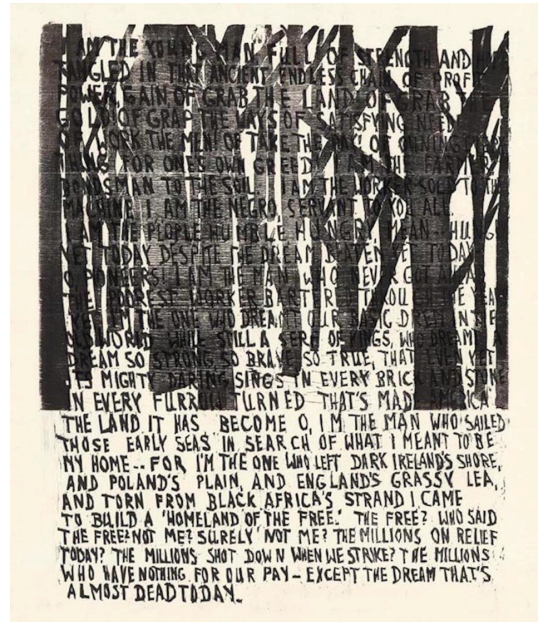 I AM THE YOUNG MAN, FULL OF STRENGTH AND
TANGLED IN THAT ANCIENT ENDLESS CHAIN OF PROFIT
POWER, GAIN, OF GRAB THE LAND OF GRAB THE
GOLD OF GRAP THE WAYS OF SATISFYING NEED
WORK THE MEN! OF TAKE THE PAY, OF OWNING
FOR ONE'S OWN GREED! I AM THE FARMER,
BONDSMAN TO THE SOIL I AM THE WORKER SOLD TO THE
MACHINE. I AM THE NEGRO, SERVANT TO YOU ALL.
I AM THE PEOPLE HUMBLE HUNGRY, MEAN HUNG
YET TODAY DESPITE THE DREAM BEATEN YET TODAY
O PIONEERS. I AM THE MAN WHO NEVER GOT AHEAD
THE POOREST WORKER BARTERED THROUGH THE YEARS
I'M THE ONE WHO DREAMT OUR BASIC DREAM
OLD WORLD WHILE STILL A SERF OF KINGS, WHO DREAMT A
DREAM SO STRONG, SO BRAVE, SO TRUE, THAT EVEN YET
ITS MIGHTY DARING SINGS IN EVERY BRICK AND STONE
IN EVERY FURROW TURNED THAT'S MADE AMERICA
THE LAND IT HAS BECOME O, I'M THE MAN WHO SAILED
THOSE EARLY SEAS IN SEARCH OF WHAT I MEANT TO BE
MY HOME-- FOR I'M THE ONE WHO LEFT DARK IRELAND'S SHORE,
AND POLAND'S PLAIN, AND ENGLAND'S GRASSY LEA,
AND TORN FROM BLACK AFRICA'S STRAND I CAME
TO BUILD A "HOMELAND OF THE FREE." THE FREE? WHO SAID
THE FREE? NOT ME? SURELY NOT ME? THE MILLIONS ON RELIEF
TODAY? THE MILLIONS SHOT DOWN WHEN WE STRIKE? THE MILLIONS
WHO HAVE NOTHING FOR OUR PAY - EXCEPT THE DREAM THAT'S
ALMOST DEAD TODAY.